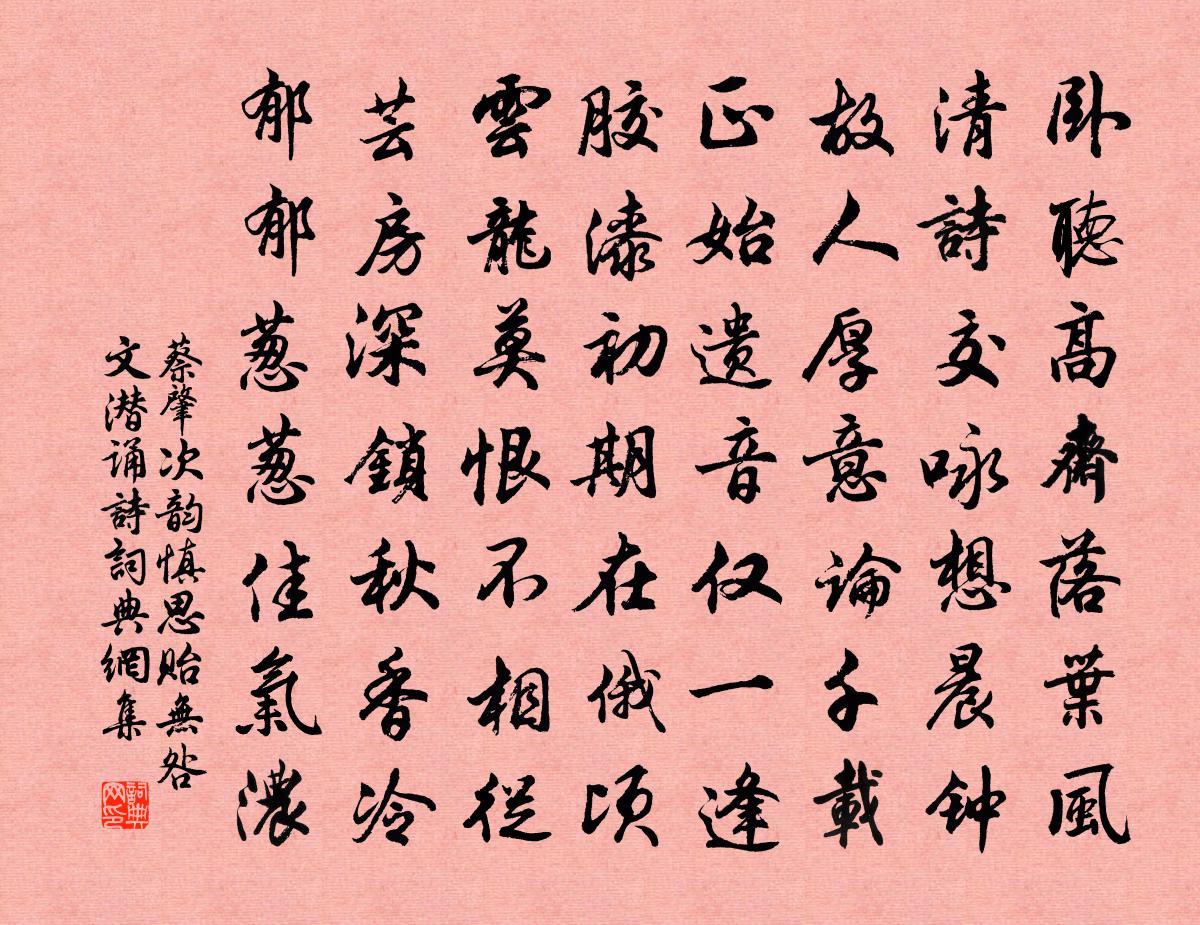 卧聽高齋落葉風
清詩交咏想晨钟
故人厚意論千載
正始遗音仅一逢
胶漆初期在俄顷
雲龍莫恨不相從
芸房深鎖秋香冷
郁郁葱葱佳氣濃
蔡肇次韵慎思贻無咎
文潜诵詩詞典網集
詞典网印